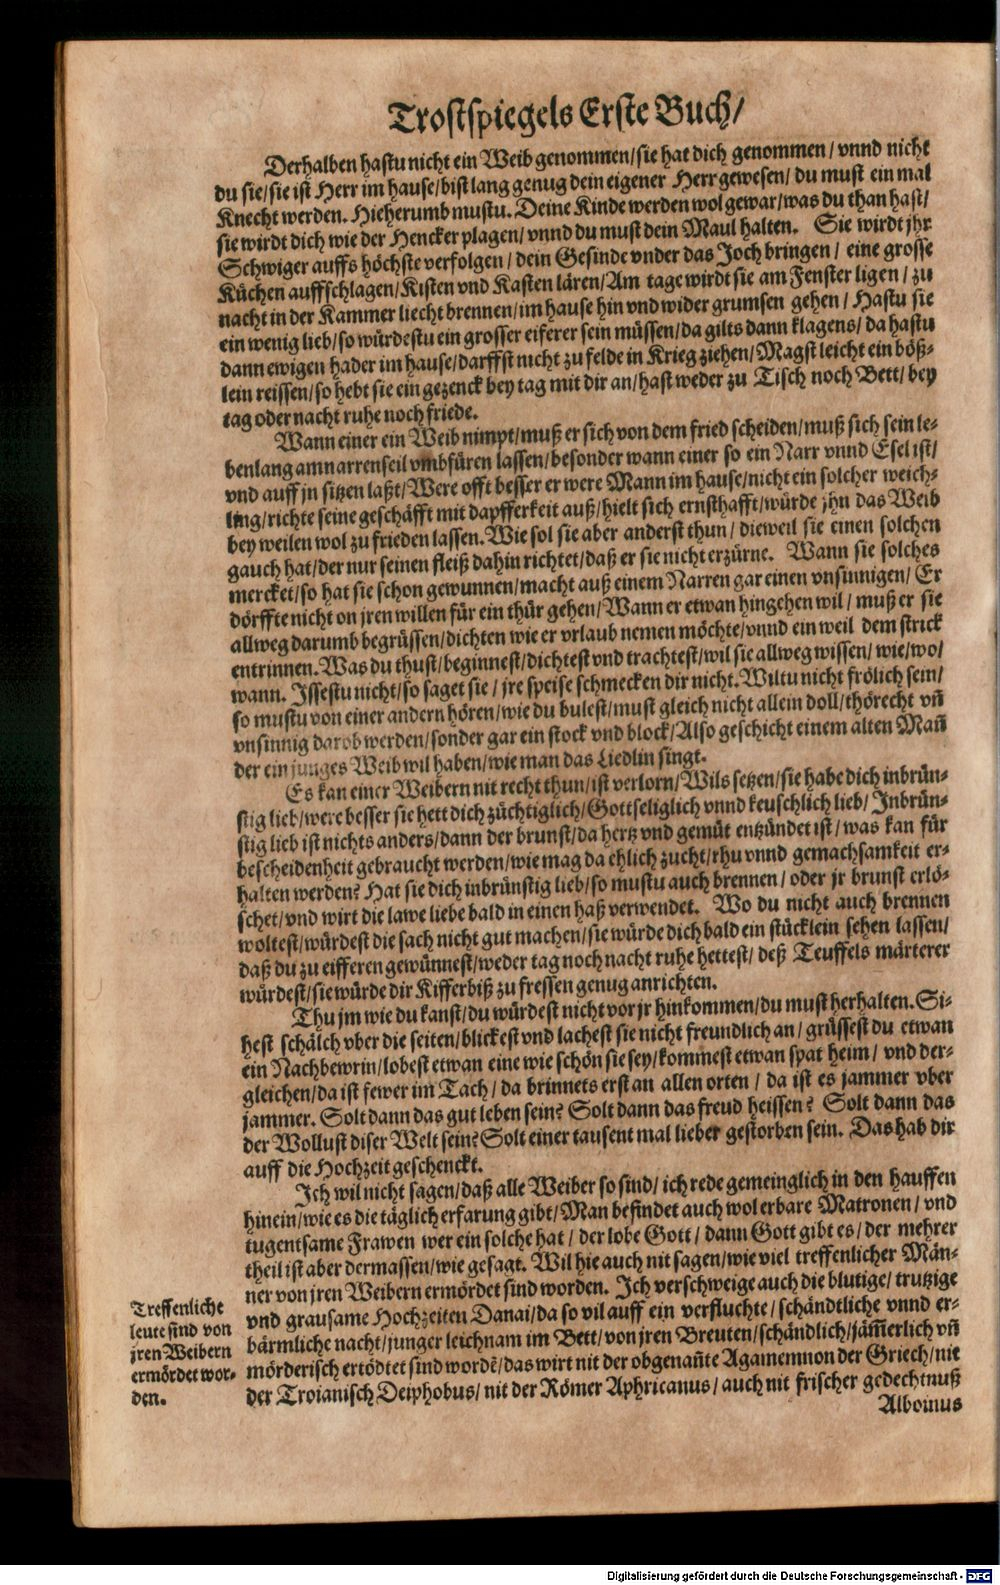 Trostspiegels Erste Buch/
Derhalben hastu nicht ein Weib genommen/sie hat dich genommen/ vnnd nicht
du sie/sie ist Herr im hause/bist lang genug dein eigener Herr gewesen/ du must ein mal
Knecht werden. Hieherumb mustu. Deine Kinde werden wol gewar/was du than hast/
sie wirdt dich wie der Hencker plagen/vnnd du must dein Maul halten. Sie wirdt jhr
Schwiger auffs höchste verfolgen/ dein Gesinde vnder das Joch bringen/ eine grosse
Küchen auffschlagen/Kisten vnd Kasten lären/Am tage wirdt sie am Fenster ligen/ zu
nacht in der Kammer liecht brennen/im hause hin vnd wider grumsen gehen/ Hastu sie
ein wenig lieb/so würdestu ein grosser eiferer sein müssen/da gilts dann klagens/ da hastu
dann ewigen hader im hause/darffst nicht zu felde in Krieg ziehen/Magst leicht ein böß-
lein reissen/so hebt sie ein gezenck bey tag mit dir an/hast weder zu Tisch noch Bett/ bey
tag oder nacht ruhe noch friede.
Wann einer ein Weib nimpt/muß er sich von dem fried scheiden/muß sich sein le-
benlang am narrenseil vmbfüren lassen/besonder wann einer so ein Narr vnnd Esel ist/
vnd auff jn sitzen laßt/Were offt besser er were Mann im hause/nicht ein solcher weich-
ling/richte seine geschäfft mit dapfferkeit auß/hielt sich ernsthafft/würde jhn das Weib
bey weilen wol zu frieden lassen. Wie sol sie aber anderst thun/ dieweil sie einen solchen
gauch hat/der nur seinen fleiß dahin richtet/daß er sie nicht erzürne. Wann sie solches
mercket/so hat sie schon gewunnen/macht auß einem Narren gar einen vnsinnigen/ Er
dörffte nicht on jren willen für ein thür gehen/Wann er etwan hingehen wil/ muß er sie
allweg darumb begrüssen/dichten wie er vrlaub nemen möchte/vnnd ein weil dem strick
entrinnen. Was du thust/beginnest/dichtest vnd trachtest/wil sie allweg wissen/ wie/wo/
wann. Issestu nicht/so saget sie/ jre speise schmecken dir nicht. Wiltu nicht frölich sein/
so mustu von einer andern hören/wie du bulest/must gleich nicht allein doll/thörecht vñ
vnsinnig darob werden/sonder gar ein stock vnd block/Also geschicht einem alten Mañ
der ein junges Weib wil haben/wie man das Liedlin singt.
Es kan einer Weibern nit recht thun/ist verlorn/Wils setzen/sie habe dich inbrün-
stig lieb/were besser sie hett dich züchtiglich/Gottseliglich vnnd keuschlich lieb/ Inbrün-
stig lieb ist nichts anders/dann der brunst/da hertz vnd gemüt entzündet ist/was kan für
bescheidenheit gebraucht werden/wie mag da ehlich zucht/rhu vnnd gemachsamkeit er-
halten werden? Hat sie dich inbrünstig lieb/so mustu auch brennen/ oder jr brunst erlö-
schet/vnd wirt die lawe liebe bald in einen haß verwendet. Wo du nicht auch brennen
woltest/würdest die sach nicht gut machen/sie würde dich bald ein stücklein sehen lassen/
daß du zu eifferen gewünnest/weder tag noch nacht ruhe hettest/ deß Teuffels märterer
würdest/sie würde dir Kifferbiß zu fressen genug anrichten.
Thu jm wie du kanst/du würdest nicht vor jr hinkommen/du must herhalten. Si-
hest schälch vber die seiten/blickest vnd lachest sie nicht freundlich an/ grüssest du etwan
ein Nachbewrin/lobest etwan eine wie schön sie sey/kommest etwan spat heim/ vnd der-
gleichen/da ist fewer im Tach/ da brinnets erst an allen orten/ da ist es jammer vber
jammer. Solt dann das gut leben sein? Solt dann das freud heissen? Solt dann das
der Wollust diser Welt sein? Solt einer tausent mal lieber gestorben sein. Das hab dir
auff die Hochzeit geschenckt.
Ich wil nicht sagen/daß alle Weiber so sind/ ich rede gemeinglich in den hauffen
hinein/wie es die täglich erfarung gibt/Man befindet auch wol erbare Matronen/ vnd
tugentsame Frawen wer ein solche hat/ der lobe Gott/ dann Gott gibt es/der mehrer
theil ist aber dermassen/wie gesagt. Wil hie auch nit sagen/wie viel treffenlicher Män-
ner von jren Weibern ermördet sind worden. Ich verschweige auch die blutige/ trutzige
vnd grausame Hochzeiten Danai/da so vil auff ein verfluchte/schändtliche vnnd er-
bärmliche nacht/junger leichnam im Bett/von jren Breuten/schändlich/jäm̃erlich vñ
mörderisch ertödtet sind wordẽ/das wirt nit der obgenañte Agamemnon der Griech/nit
der Troianisch Deiphobus/nit der Römer Aphricanus/auch nit frischer gedechtnuß
Alboinus
Treffenliche
leute sind von
jren Weibern
ermördet wor-
den.
Digitalisierung gefördert durch die Deutsche Forschungsgemeinschaft - DFG